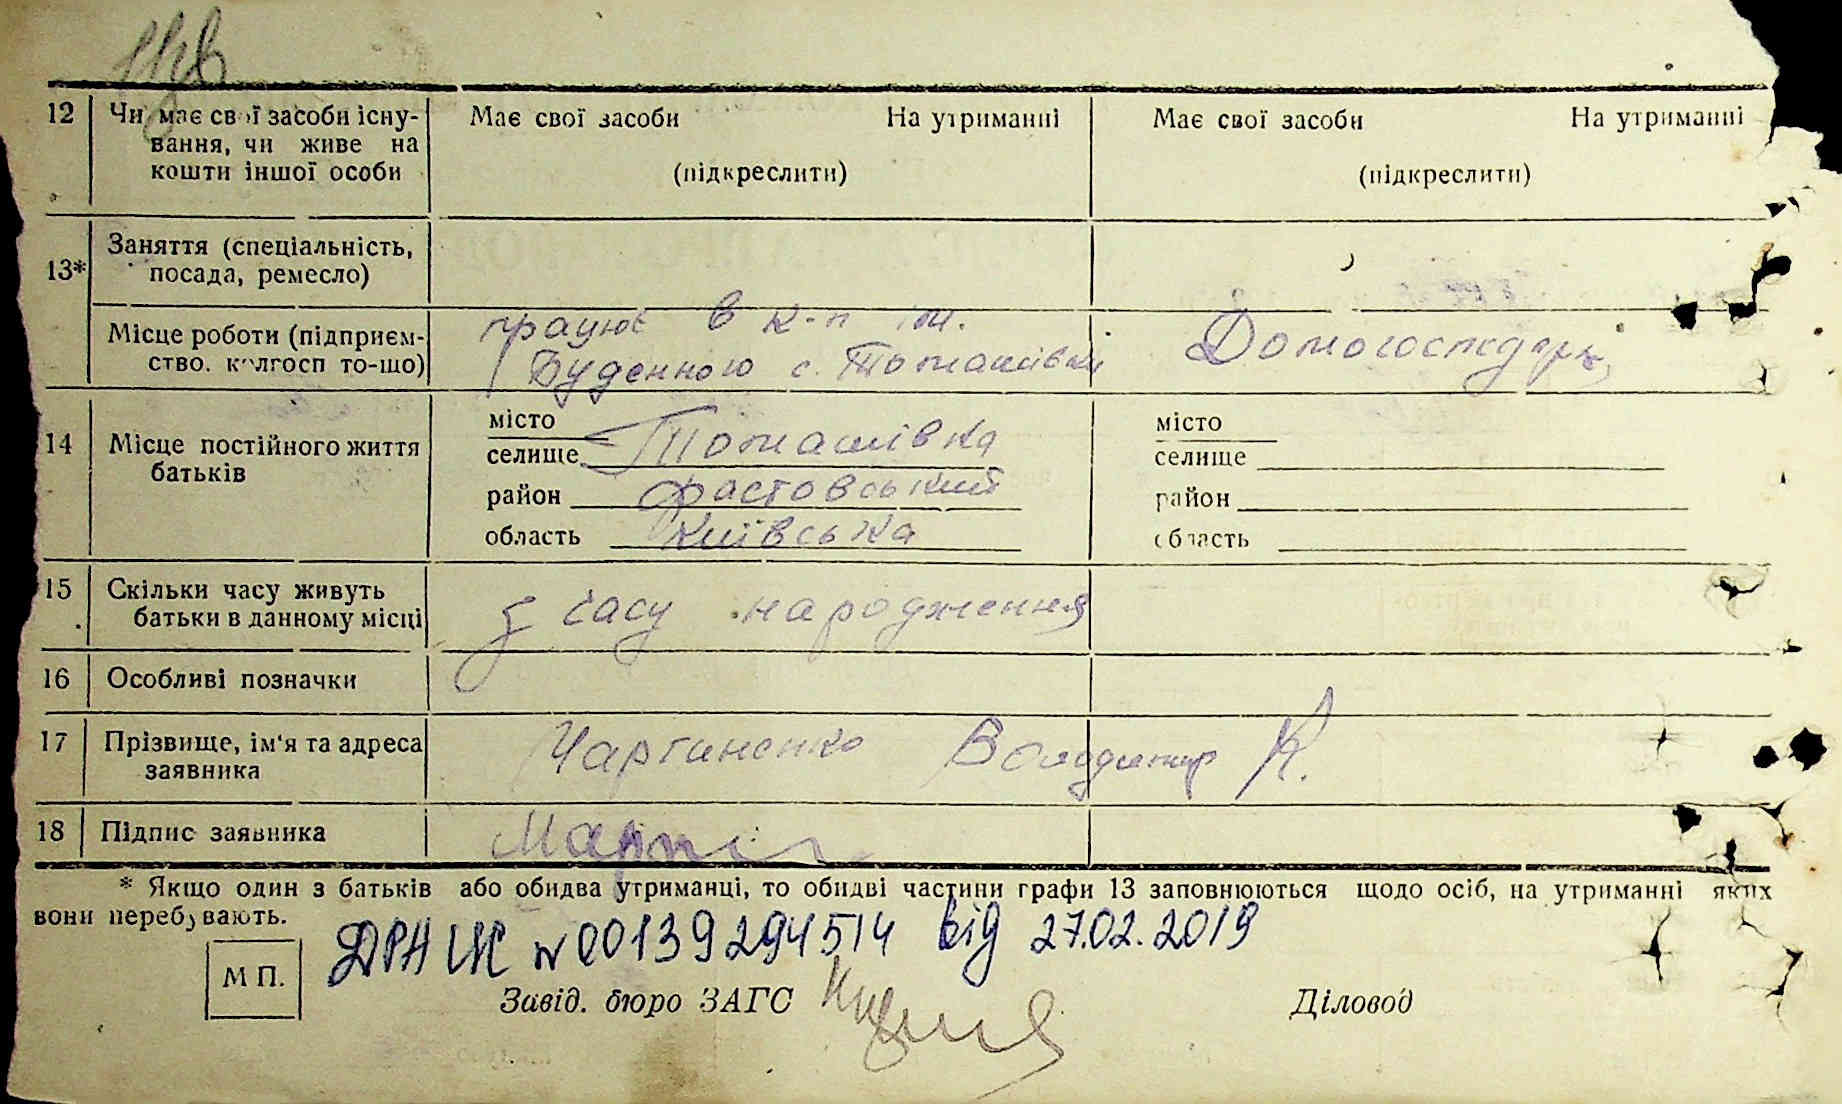 12 Чи має свої засоби існу-
вання, чи живе на
кошти іншої особи
Має свої засоби На утриманні
(підкреслити)
Має свої засоби На утриманні
(підкреслити)
13* Заняття (спеціальність,
посада, ремесло)
Місце роботи (підприєм-
ство. колгосп то-що)
працює в к-п ім.
Буденного с. Томашівки
Домогосподарк
14 Місце постійного життя
батьків
місто
селище Томашівка
район Фастовський
область Київська
місто
селище
район
область
15 Скільки часу живуть
батьки в данному місці
з часу народження
16 Особливі позначки
17 Прізвище, ім'я та адреса
заявника
Володимир К.
18 Підпис заявника
* Якщо один з батьків або обидва утриманці, то обидві частини графи 13 заповнюються щодо осіб, на утриманні яких
вони перебувають.
ДРАЦС № 00139294514 від 27.02.2019
М П.
Завід. бюро ЗАГС Діловод